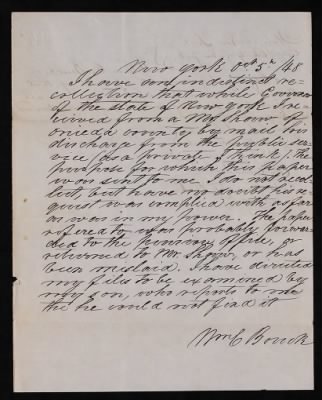 New York Oct 5th /48
I have some indistinct re-
collection that while Governor
of the State of New York I re-
ceived from a Mr Shaw of
oneida county by mail his
discharge from the public ser-
vice (as a private I think). The
purpose for which this paper
was sent to me I do not recol-
lect, but have no doubt his re-
quest was complied with as far
as was in my power. The paper
refered to was probably forwar-
ded to the pension office, or
returned to Mr Shaw, or has
been mislaid. I have directed
my files to be examined by
my son, who reports to me
the he could not find it
Wm C Bouck